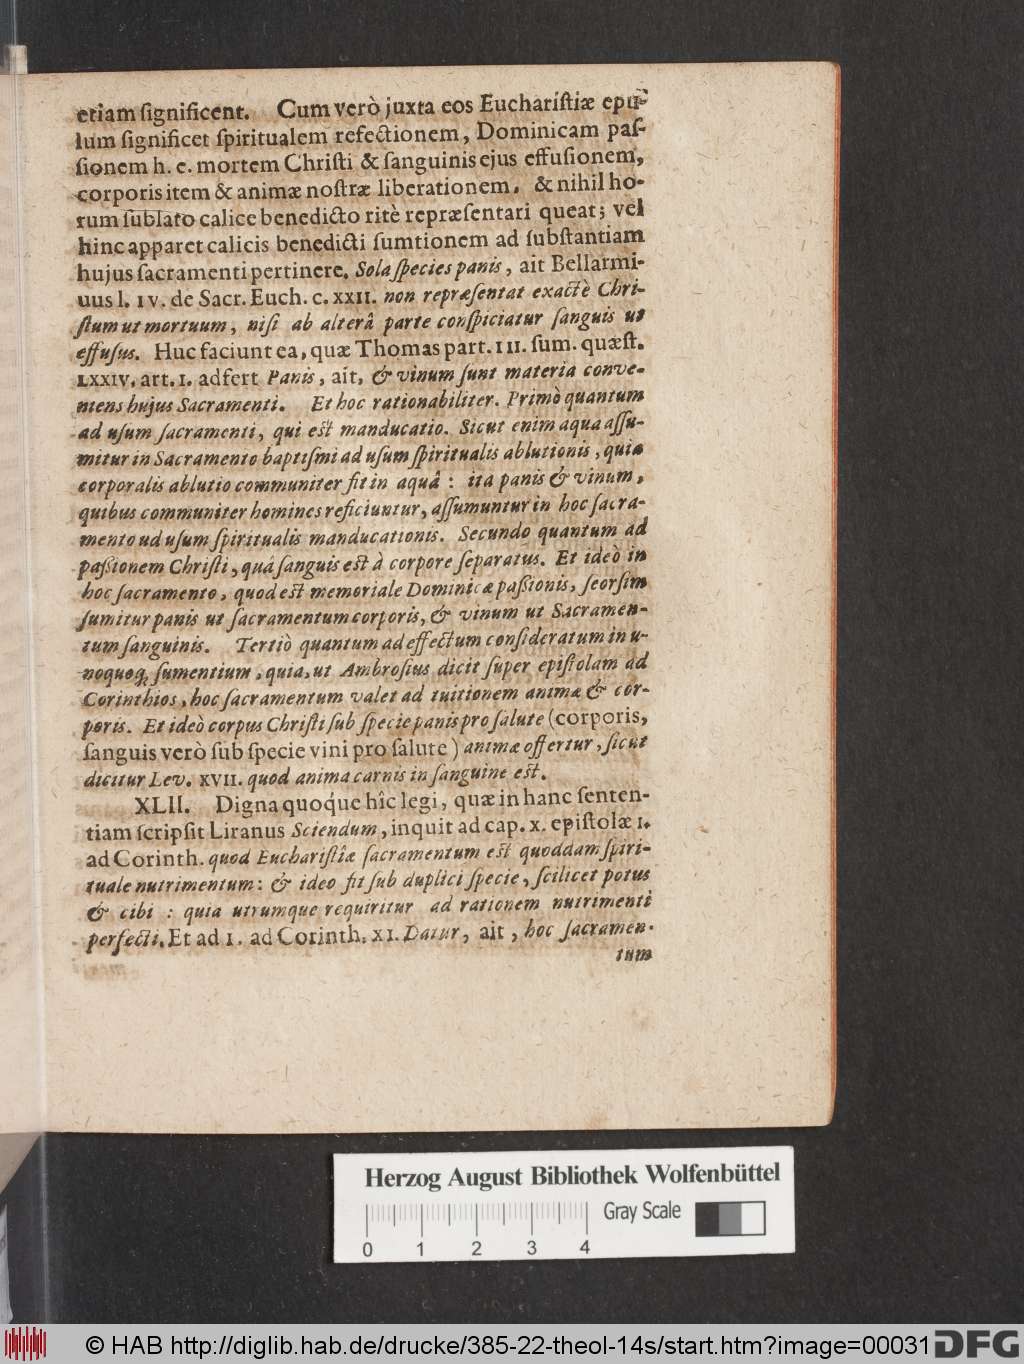 etiam ſignificent. Cum verò juxta eos Euchariſtiæ epu-
lum ſignificet ſpiritualem refectionem, Dominicam paſ-
ſionem h. e. mortem Chriſti & ſanguinis ejus effuſionem,
corporis item & animæ noſtræ liberationem, & nihil ho-
rum ſublato calice benedicto ritè repræſentari queat; vel
hinc apparet calicis benedicti ſumtionem ad ſubſtantiam
hujus ſacramenti pertinere. Sola ſpecies panis, ait Bellarmi-
uus l. IV. de Sacr. Euch. c. XXII. non repræſentat exactè Chri-
ſtum ut mortuum, niſi ab alterâ parte conſpiciatur ſanguis ut
effuſus. Huc faciunt ea, quæ Thomas part. III. ſum. quæſt.
LXXIV. art. I. adfert Panis, ait, & vinum ſunt materia conve-
niens hujus Sacramenti. Et hoc rationabiliter. Primò quantum
ad uſum ſacramenti, qui eſt manducatio. Sicut enim aqua aſſu-
mitur in Sacramento baptiſmi ad uſum ſpiritualis ablutionis, quia
corporalis ablutio communiter fit in aquâ: ita panis & vinum,
quibus communiter homines reficiuntur, aſſumuntur in hoc ſacra-
mento ud uſum ſpiritualis manducationis. Secundo quantum ad
paſſionem Chriſti, quâ ſanguis eſt à corpore ſeparatus. Et ideò in
hoc ſacramento, quod eſt memoriale Dominicæ paſſionis, ſeorſim
ſumitur panis ut ſacramentum corporis, & vinum ut Sacramen-
tum ſanguinis. Tertiò quantum ad effectum conſideratum in u-
noquoq; ſumentium, quia, ut Ambroſius dicit ſuper epiſtolam ad
Corinthios, hoc ſacramentum valet ad tuitionem animæ & cor-
poris. Et ideò corpus Chriſti ſub ſpecie panis pro ſalute (corporis,
ſanguis verò ſub ſpecie vini pro ſalute) animæ offertur, ſicut
dicitur Lev. XVII. quod anima carnis in ſanguine eſt.
XLII. Digna quoque hîc legi, quæ in hanc ſenten-
tiam ſcripſit Liranus Sciendum, inquit ad cap. X. epiſtolæ I.
ad Corinth. quod Euchariſtiæ ſacramentum eſt quoddam ſpiri-
tuale nutrimentum: & ideo fit ſub duplici ſpecie, ſcilicet potus
& cibi: quia utrumque requiritur ad rationem nutrimenti
perfecti. Et ad I. ad Corinth. XI. Datur, ait, hoc ſacramen-
tum
Herzog August Bibliothek Wolfenbüttel
Gray Scale
0 1 2 3 4
© HAB http://diglib.hab.de/drucke/385-22-theol-14s/start.htm?image=00031 DFG